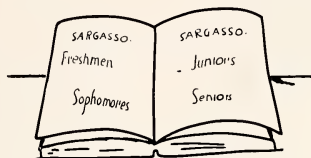 SARGASSO.
Freshmen
Sophomores
SARGASSO.
Juniors
Seniors